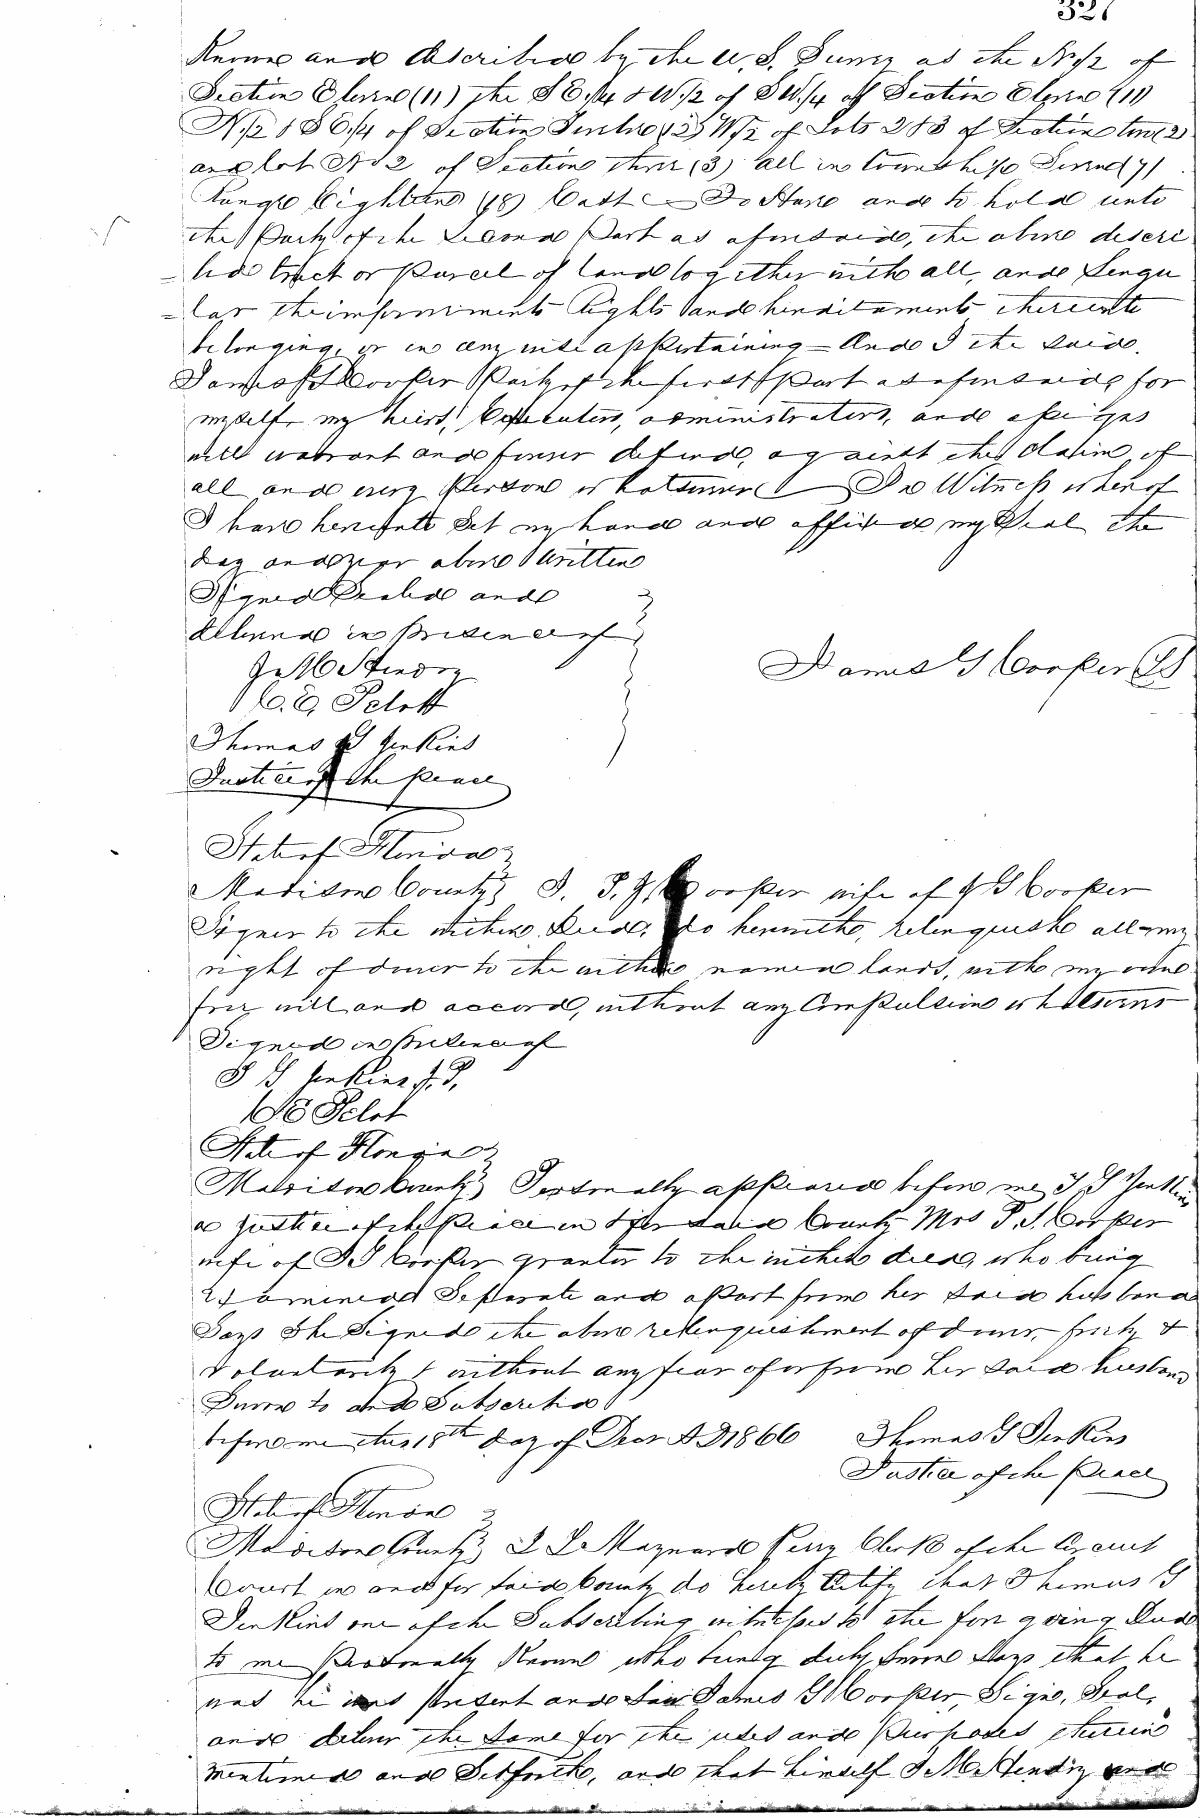 327
Known and described by the U.S. Survey as the N 1/2 of
Section Eleven (11) the SE 1/4 & W 1/2 of SW 1/4 of Section Eleven (11)
N 1/2 & SE 1/4 of Section Twelve (12) W 1/2 of Lots 2 & 3 of Section two (2)
and lot No 2 of Section three (3) all in Township Seven (7)
Range Eighteen (18) East To Have and to hold unto
the Party of the Second Part as aforesaid, the above descri
= bed tract or parcel of land together with all, and Singu
= lar the improvements Rights and hereditaments thereunto
belonging, or in any wise appertaining = And I the said
James G Cooper Party of the first Part as aforesaid for
myself, my heirs, Executors, administrators, and assigns
will warrant and forever defend, against the claim of
all and every Person whatsoever In Witness whereof
I have hereunto Set my hand and affixed my Seal the
day and year above Written
Signed Sealed and
delivered in Presence of
J. M Hendry
C. E, Pelott
James G Cooper LS
Thomas G Jenkins
Justice of the peace
State of Florida
Madison County I, P. J, Cooper wife of J G Cooper
Signer to the within Deed, do herewith, relinquish all my
right of dower to the within named lands, with my own
free will and accord, without any Compulsion whatsoever
Signed in Presence of
T G Jenkins J.P.
C E Pelot
State of Florida
Madison County Personally appeared before me T G Jenkins
a justice of the Peace in & for said County Mrs P. J. Cooper
wife of J G Cooper grantor to the within deed, who being
Examined Separate and apart from her said husband
Says She Signed the above relinquishment of dower, freely &
Voluntarily & without any fear of or from her said husband
Sworn to and Subscribed
before me this 18th day of Decr A D 1866 Thomas G Jenkins
Justice of the Peace
State of Florida
Madison County I L Maynard Perry Clerk of the Circuit
Court in and for said County do hereby Certify that Thomas G
Jenkins one of the Subscribing witnesses to the foregoing Deed
to me Personally Known who being duly Sworn Says that he
was he was present and Saw James G Cooper, Sign, Seal,
and deliver the Same for the uses and Purposes therein
mentioned and Setforth, and that himself J M Hendry and